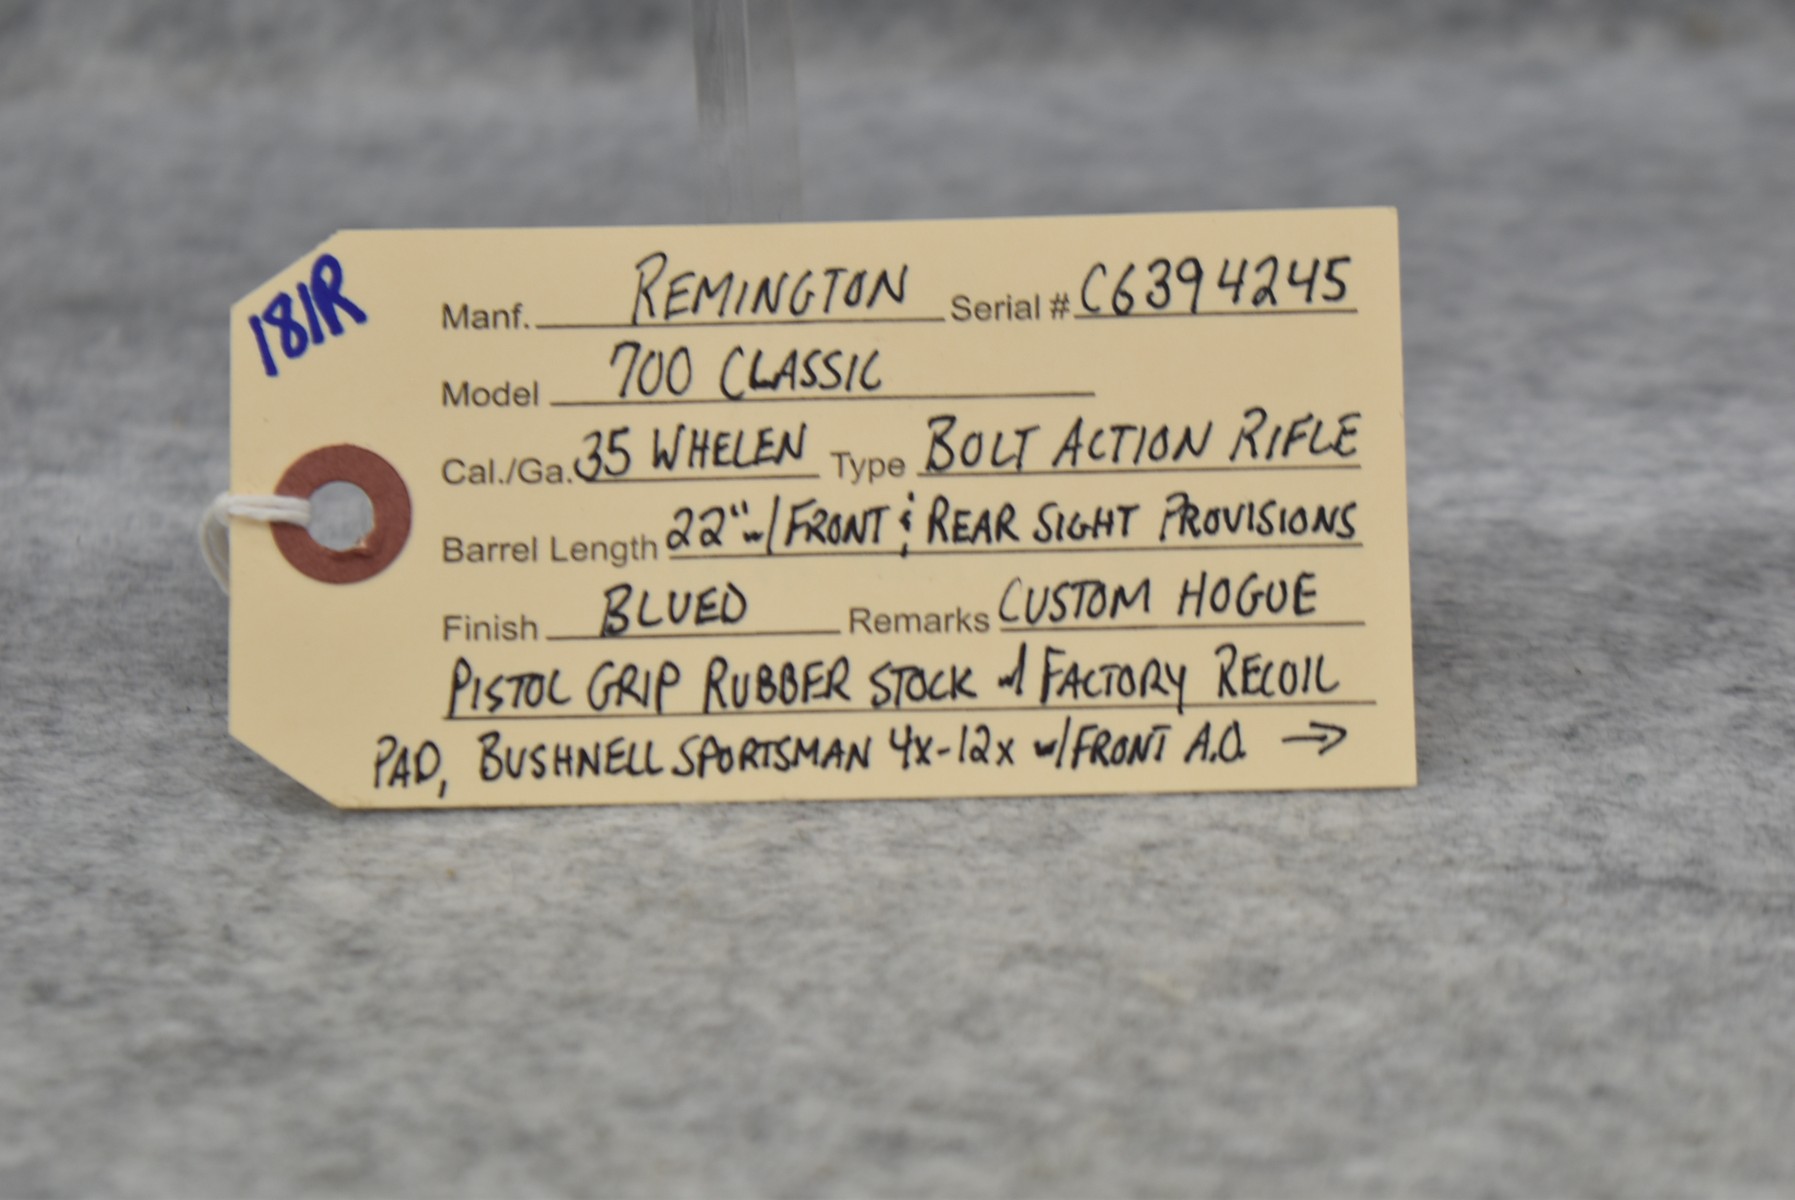 181R
Manf. REMINGTON Serial # C6394245
Model 700 CLASSIC
Cal./Ga. 35 WHELEN Type BOLT ACTION RIFLE
Barrel Length 22" w/ FRONT & REAR SIGHT PROVISIONS
Finish BLUED Remarks CUSTOM HOGUE
PISTOL GRIP RUBBER STOCK w/ FACTORY RECOIL
PAD, BUSHNELL SPORTSMAN 4x-12x w/ FRONT A.O. →